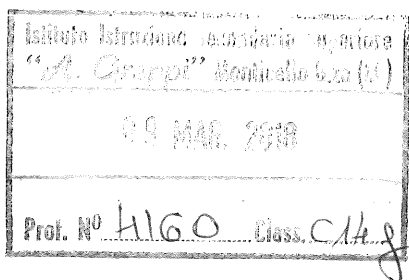 Istituto Istruzione Secondaria Superiore
"A. Greppi" Monticello B.za (
09 MAR. 2018
Prot. Nº 4160 Class. C14